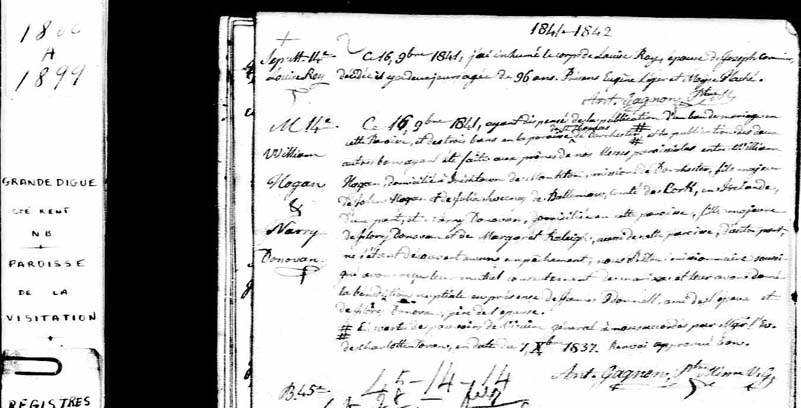 1800
A
1899
GRANDE DIGUE
CTÉ KENT
NB
+
PAROISSE
DE LA
VISITATION
+
REGISTRES
1841-1842
Sepult. 14e
Louise Roy
Ce 16, 9bre 1841, j'ai inhumé le corps de Louise Roy, épouse de Joseph
décédée il y a deux jours agée de 96 ans. Présens Eugène Léger et
Ant. Gagnon, Ptre
M. 14e
William
Hogan
&
Nany
Donovan
Ce 16, 9bre 1841, ayant dispensé de la publication d'un ban de mariage en
cette Paroisse, et des trois bans en la paroisse de Dorchester # et la publication des deux
autres bans ayant été faite aux prônes de nos Messes paroissiales entre William
Hogan, domicilié à, mission de Dorchester, fils majeur
de John Hogan et de Julie de, comté de Cork, en Irlande,
d'une part, et Nany Donovan, domiciliée en cette paroisse, fille majeure
de Jérry Donovan et de Margaret Raleigh, aussi de cette paroisse, d'autre part,
ne s'étant découvert aucun empêchement, nous Prêtre missionnaire soussi-
gné avons reçu leur mutuel consentement de mariage et leur avons donné
la bénédiction nuptiale en présence de James Odonnell, ami de l'époux et
de Jérry Donovan, père de l'épouse.
# En vertu des pouvoirs de Vicaire général à nous accordés par Mgr l'Ev.
de Charlotte Town, en date du 7, Xbre 1837. Renvoi approuvé bon.
Ant. Gagnon, Ptre Miss. V.G.
B. 45e
45-14-14